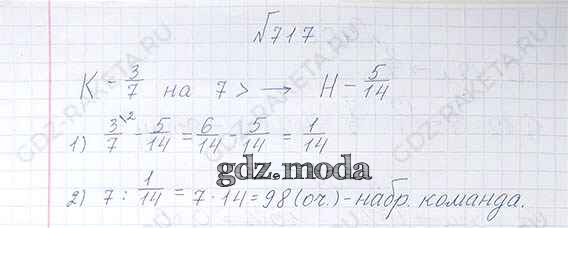 №717
К - 3/7 на 7 > → Н - 5/14
1) 3/7\2 - 5/14 = 6/14 - 5/14 = 1/14
gdz.moda
2) 7 : 1/14 = 7 · 14 = 98 (оч.) - набр. команда.
GDZ-RAKETA.RU